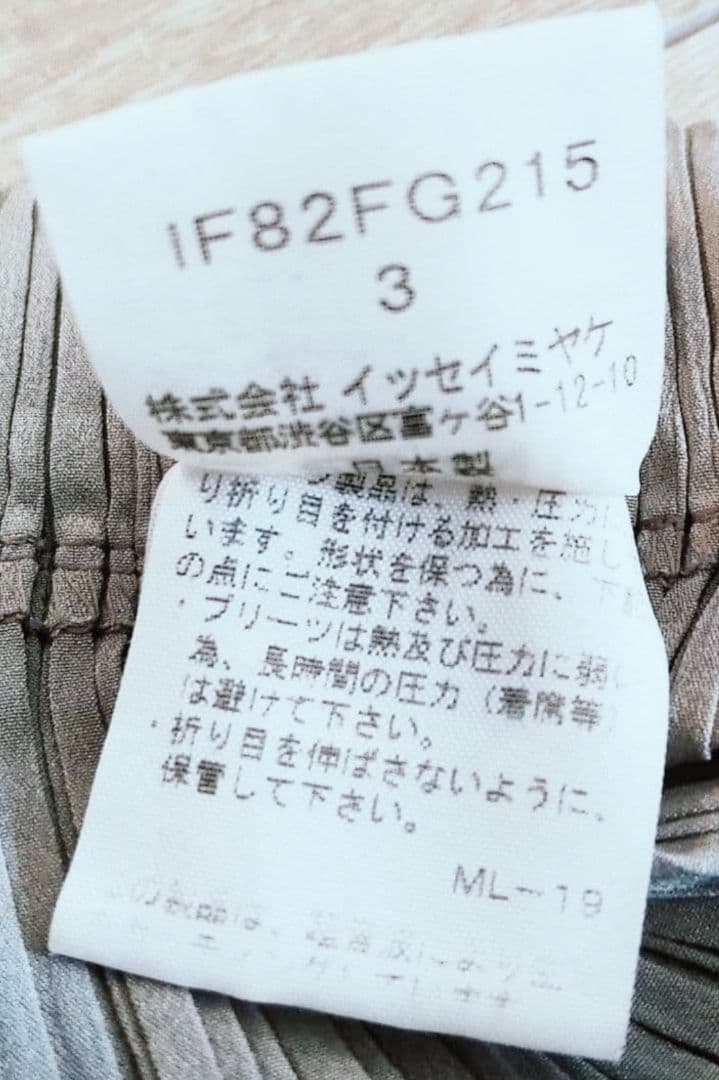 IF82FG215
3
株式会社 イッセイミヤケ
東京都渋谷区富ヶ谷1-12-10
日本製
製品は、熱・圧力に
り折り目を付ける加工を施し
います。形状を保つ為に、下記
の点にご注意下さい。
・プリーツは熱及び圧力に弱い
為、長時間の圧力(着席等)
は避けて下さい。
・折り目を伸ばさないように、
保管して下さい。
ML-19
の製品は、